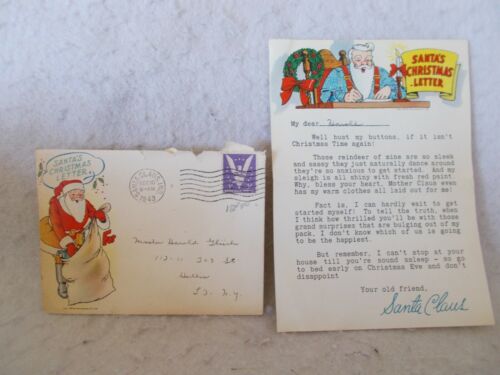 SANTA'S
CHRISTMAS
LETTER
SANTA CLAUS, IND.
DEC 10
1943
Master Harold
112-11 203 St
L.I. N.Y.
SANTA'S
CHRISTMAS
LETTER
My dear Harold
Well bust my buttons, if it isn't
Christmas Time again!
Those reindeer of mine are so sleek
and sassy they just naturally dance around
they're so anxious to get started. And my
sleigh is all shiny with fresh red paint.
Why, bless your heart, Mother Claus even
has my warm clothes all laid out for me!
Fact is, I can hardly wait to get
started myself! To tell the truth, when
I think how thrilled you'll be with those
grand surprises that are bulging out of my
pack, I don't know which of us is going
to be the happiest.
But remember, I can't stop at your
house till you're sound asleep - so go
to bed early on Christmas Eve and don't
disappoint
Your old friend,
Santa Claus